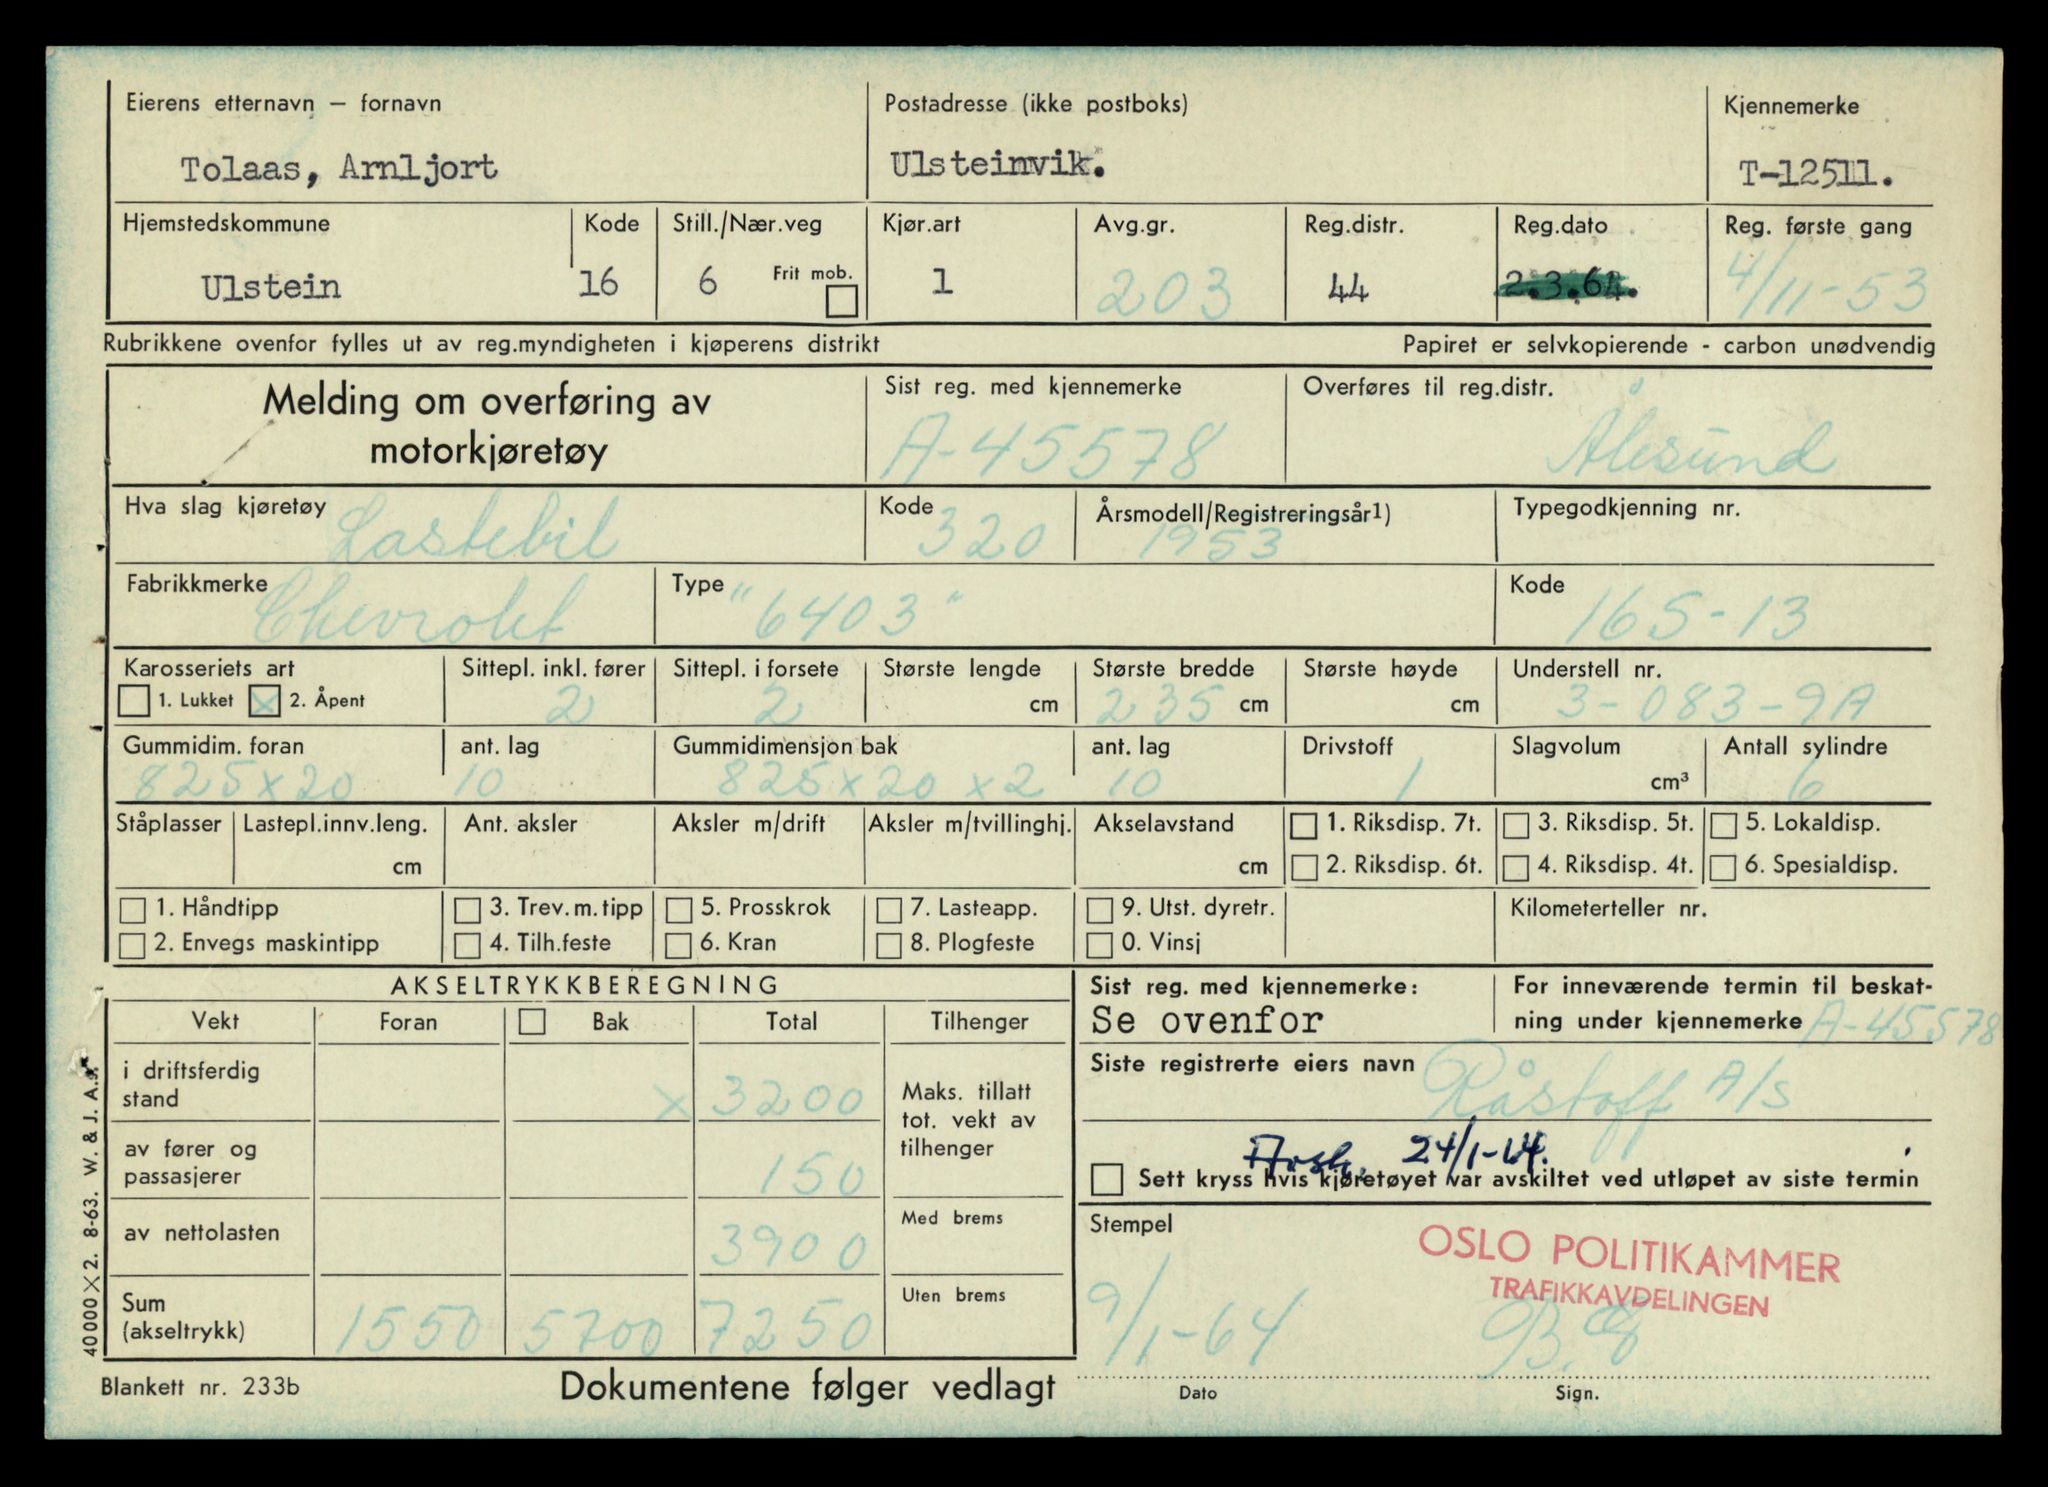 Eierens etternavn – fornavn Postadresse (ikke postboks) Kjennemerke
Tolaas, Arnljort Ulsteinvik. T-12511.
Hjemstedskommune Kode Still./Nær.veg Kjør.art Avg.gr. Reg.distr. Reg.dato Reg. første gang
Ulstein 16 6 Frit mob. 1 203 44 2.3.64. 4/11-53
Rubrikkene ovenfor fylles ut av reg.myndigheten i kjøperens distrikt Papiret er selvkopierende - carbon unødvendig
Melding om overføring av
motorkjøretøy
Sist reg. med kjennemerke Overføres til reg.distr.
A-45578 Ålesund
Hva slag kjøretøy Kode Årsmodell/Registreringsår1) Typegodkjenning nr.
Lastebil 320 1953
Fabrikkmerke Type Kode
Chevrolet "6403" 165-13
Karosseriets art Sittepl. inkl. fører Sittepl. i forsete Største lengde Største bredde Største høyde Understell nr.
1. Lukket X 2. Åpent 2 2 cm 235 cm cm 3-083-9A
Gummidim. foran ant. lag Gummidimensjon bak ant. lag Drivstoff Slagvolum Antall sylindre
825x20 10 825x20 x2 10 1 cm³ 6
Ståplasser Lastepl.innv.leng. Ant. aksler Aksler m/drift Aksler m/tvillinghj. Akselavstand 1. Riksdisp. 7t. 3. Riksdisp. 5t. 5. Lokaldisp.
cm cm 2. Riksdisp. 6t. 4. Riksdisp. 4t. 6. Spesialdisp.
1. Håndtipp 3. Trev.m.tipp 5. Prosskrok 7. Lasteapp. 9. Utst. dyretr. Kilometerteller nr.
2. Envegs maskintipp 4. Tilh.feste 6. Kran 8. Plogfeste 0. Vinsj
AKSELTRYKKBEREGNING
Vekt Foran Bak Total Tilhenger
i driftsferdig
stand x 3200
Maks. tillatt
tot. vekt av
tilhenger
av fører og
passasjerer 150
av nettolasten 3900 Med brems
Sum
(akseltrykk) 1550 5700 7250 Uten brems
Sist reg. med kjennemerke: For inneværende termin til beskat-
Se ovenfor ning under kjennemerke A-45578
Siste registrerte eiers navn Råstoff A/S
24/1-64.
Sett kryss hvis kjøretøyet var avskiltet ved utløpet av siste termin
Stempel
OSLO POLITIKAMMER
TRAFIKKAVDELINGEN
9/1-64
Dato Sign.
40000 X 2. 8-63. W. & J. A.s.
Blankett nr. 233b Dokumentene følger vedlagt